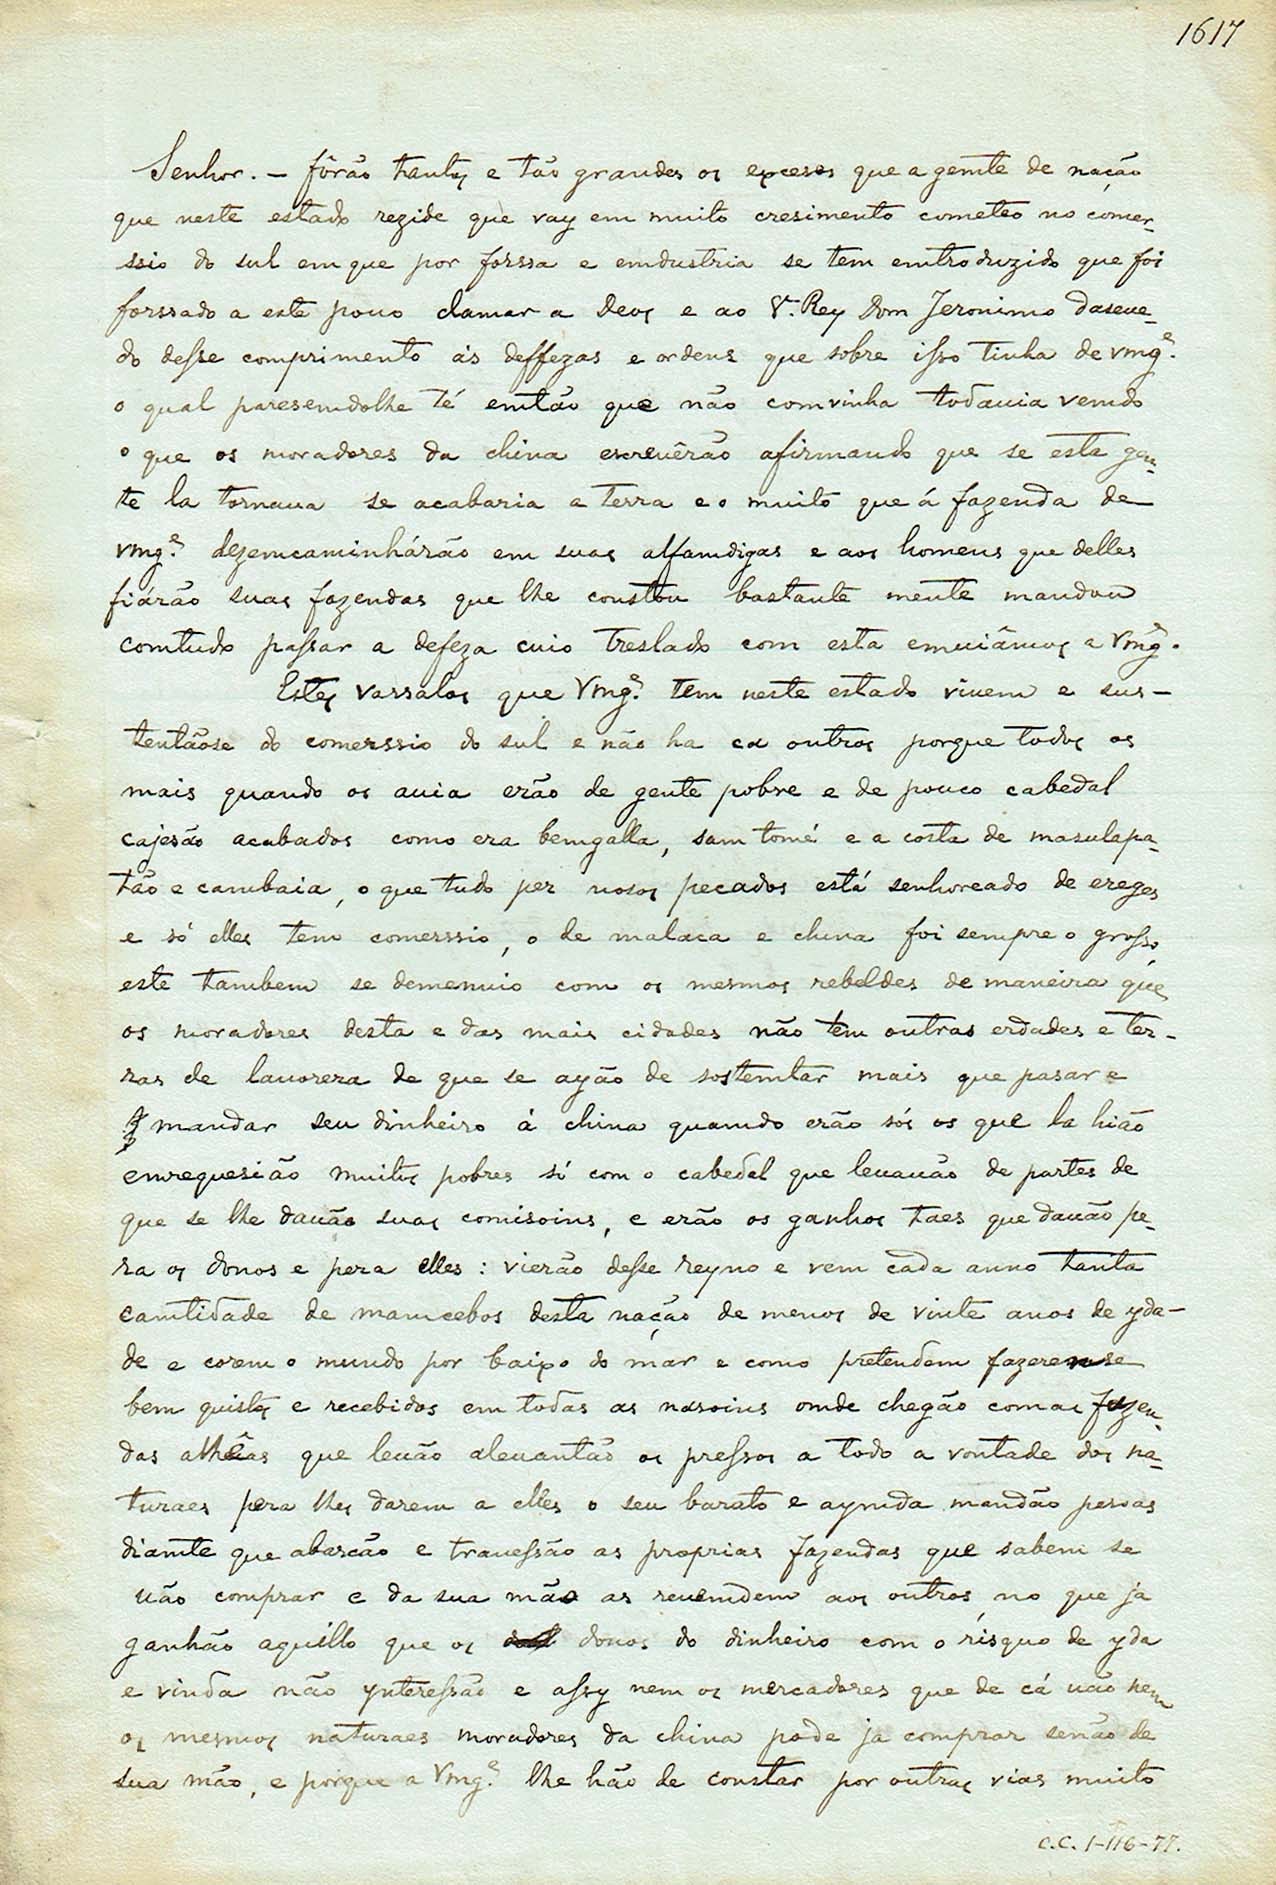 1617
Senhor. – fôrão tantos e tão grandes os exceços que a gemte de nação
que neste estado rezide que vay em muito cresimento cometeo no comer-
ssio do sul em que por forssa e emdustria se tem emtroduzido que foi
forssado a este pouo clamar a Deos e ao V. Rey Dom Jeronimo daseue-
do desse comprimento ás deffezas e ordens que sobre isso tinha de vmgᵉ.
o qual paresemdolhe té emtão que não comvinha todauia vemdo
o que os moradores da china escreuêrão afirmando que se esta gen-
te la tornaua se acabaria a terra e o muito que á fazenda de
vmgᵉ. dezemcaminhárão em suas alfamdigas e aos homens que delles
fiárão suas fazendas que lhe constou bastante mente mandou
comtudo passar a defeza cuio treslado com esta emuiâmos a Vmgᵉ.
Estes vassalos que Vmgᵉ. tem neste estado viuem e sus-
tentãose do comerssio do sul e não ha ca outros porque todos os
mais quando os auia erão de gente pobre e de pouco cabedal
cajesão acabados como era bemgalla, sam tomé e a costa de masulapa-
tão e cambaia, o que tudo per nosos pecados está senhoreado de ereges
e só elles tem comerssio, o de malaca e china foi sempre o grosso,
este tambem se demenuio com os mesmos rebeldes de maneira que
os moradores desta e das mais cidades não tem outras erdades e ter-
ras de lauorera de que se ayão de sostemtar mais que pasar e
mandar seu dinheiro á china quamdo erão sós os que la hião
emrequesião muitos pobres só com o cabedal que leuauão de partes de
que se lhe dauão suas comisoins, e erão os ganhos taes que dauão pe-
ra os donos e pera elles: vierão desse reyno e vem cada anno tanta
camtidade de mamcebos desta nação de menos de vinte anos de yda-
de e corem o mundo por baixo do mar e como pretendem fazeremse
bem quistos e recebidos em todas as nasoins omde chegão comas fazen-
das alhêas que leuão aleuantão os pressos a todo a vontade dos na-
turaes pera lhes darem a elles o seu barato e aymda mandão pesoas
diamte que abarcão e trauessão as proprias fazendas que sabem se
uão comprar e da sua mão as reuemdem aos outros, no que ja
ganhão aquillo que os donos do dinheiro com o risquo de yda
e vinda não ynteressão e assy nem os mercadores que de cá uão nem
os mesmos naturaes moradores da china pode ja comprar senão de
sua mão, e porque a Vmgᵉ. lhe hão de constar por outras vias muito
C.C. 1-116-77.